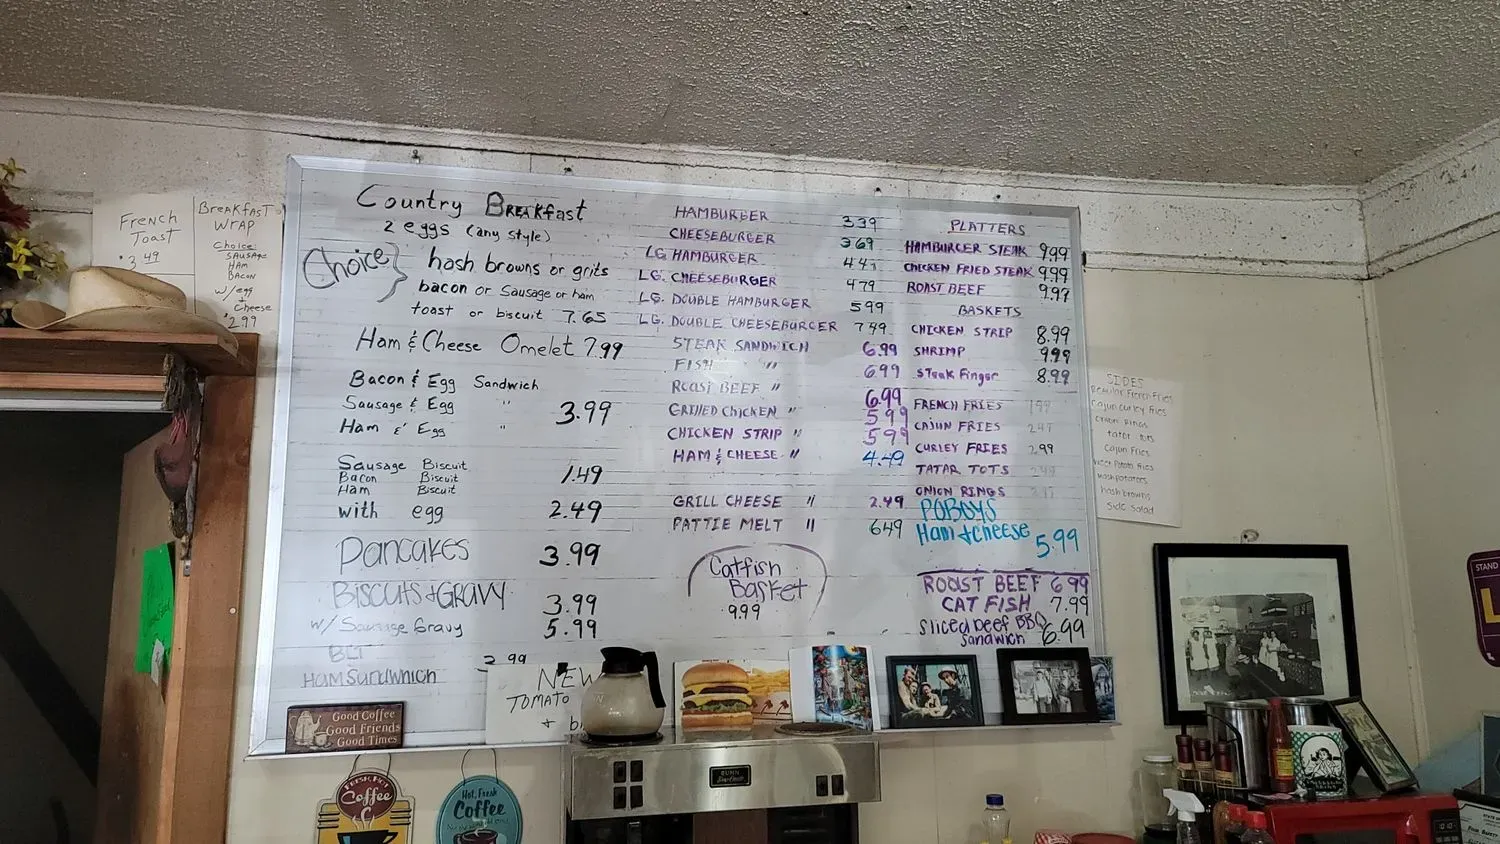 FRENCH
TOAST
3.49
BREAKFAST
WRAP
Choice:
SAUSAGE
HAM
BACON
w/egg
+
Cheese
2.99
Country BREAKfast
2 eggs (any style)
Choice
hash browns or grits
bacon or sausage or ham
toast or biscuit 7.65
Ham & Cheese Omelet 7.99
Bacon & Egg Sandwich
Sausage & Egg " 3.99
Ham & Egg "
Sausage Biscuit
Bacon Biscuit 1.49
Ham Biscuit
with egg 2.49
Pancakes 3.99
BISCUITS + GRAVY 3.99
w/ Sausage Gravy 5.99
BLT
HAM SANDWHICH
2.99
HAMBURGER 339
CHEESEBURGER 369
LG HAMBURGER 447
LG. CHEESEBURGER 479
LG. DOUBLE HAMBURGER 599
LG. DOUBLE CHEESEBURGER 749
STEAK SANDWICH 6.99
FISH " 6.99
ROAST BEEF " 6.99
GRILLED CHICKEN " 599
CHICKEN STRIP " 599
HAM & CHEESE " 4.49
GRILL CHEESE " 2.49
PATTIE MELT " 649
Catfish
Basket
9.99
PLATTERS
HAMBURGER STEAK 9.99
CHICKEN FRIED STEAK 9.99
ROAST BEEF 9.97
BASKETS
CHICKEN STRIP 8.99
SHRIMP 999
Steak Finger 8.99
FRENCH FRIES
CAJUN FRIES
CURLEY FRIES 2.99
TATAR TOTS
ONION RINGS
POBOYS
Ham & cheese 5.99
ROAST BEEF 6.99
CAT FISH 7.99
Sliced beef BBQ
Sandwich 6.99
SIDES
Regular French Fries
Cajun Curley Fries
onion rings
tatar tots
Cajun Fries
Sweet Potato Fries
mashpotatoes
hash browns
Side Salad
NEW
TOMATO
+
Good Coffee
Good Friends
Good Times
FRESH, HOT
Coffee
Hot, Fresh
Coffee
BUNN
STAND